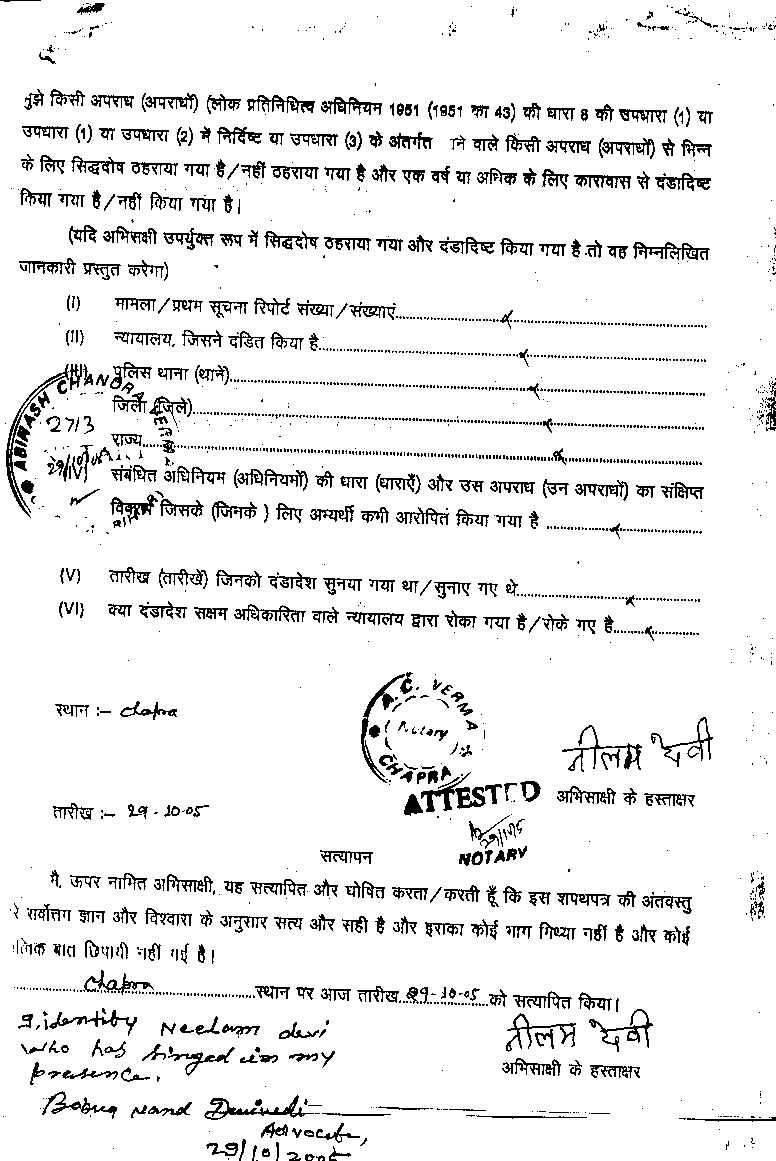 मुझे किसी अपराध (अपराधों) (लोक प्रतिनिधित्व अधिनियम 1951 (1951 का 43) की धारा 8 की उपधारा (1) या
उपधारा (1) या उपधारा (2) में निर्दिष्ट या उपधारा (3) के अंतर्गत ाने वाले किसी अपराध (अपराधों) से भिन्न
के लिए सिद्धदोष ठहराया गया है/नहीं ठहराया गया है और एक वर्ष या अधिक के लिए कारावास से दंडादिष्ट
किया गया है/नहीं किया गया है।
(यदि अभिसक्षी उपर्युक्त रूप में सिद्धदोष ठहराया गया और दंडादिष्ट किया गया है तो वह निम्नलिखित
जानकारी प्रस्तुत करेगा)
(I) मामला/प्रथम सूचना रिपोर्ट संख्या/संख्याएं.....x.....
(II) न्यायालय, जिसने दंडित किया है.....x.....
(III) पुलिस थाना (थानें).....x.....
जिला (जिले).....x.....
राज्य.....x.....
ABINASH CHANDRA VERMA
2713
29/10/05
(IV) संबंधित अधिनियम (अधिनियमों) की धारा (धाराएँ) और उस अपराध (उन अपराधों) का संक्षिप्त
विवरण जिसके (जिनके ) लिए अभ्यर्थी कभी आरोपित किया गया है .....x.....
(V) तारीख (तारीखें) जिनको दंडादेश सुनया गया था/सुनाए गए थे.....x.....
(VI) क्या दंडादेश सक्षम अधिकारिता वाले न्यायालय द्वारा रोका गया है/रोके गए है.....x.....
स्थान :– Chapra
A.C. VERMA
Notary
CHAPRA
ATTESTED
नीलम देवी
अभिसाक्षी के हस्ताक्षर
तारीख :– 29-10-05
29/10/05
NOTARY
सत्यापन
मै, ऊपर नामित अभिसाक्षी, यह सत्यापित और घोषित करता/करती हूँ कि इस शपथपत्र की अंतवस्तु
रे सर्वोत्तग ज्ञान और विश्वारा के अनुसार सत्य और सही है और इराका कोई भाग गिथ्या नहीं है और कोई
लिक बात छिपायी नहीं गई है।
.....Chapra.....स्थान पर आज तारीख 29-10-05 को सत्यापित किया।
I, identity Neelam devi
who has singed in my
presence.
नीलम देवी
अभिसाक्षी के हस्ताक्षर
Nand Dwivedi
Advocate,
29/10/2005